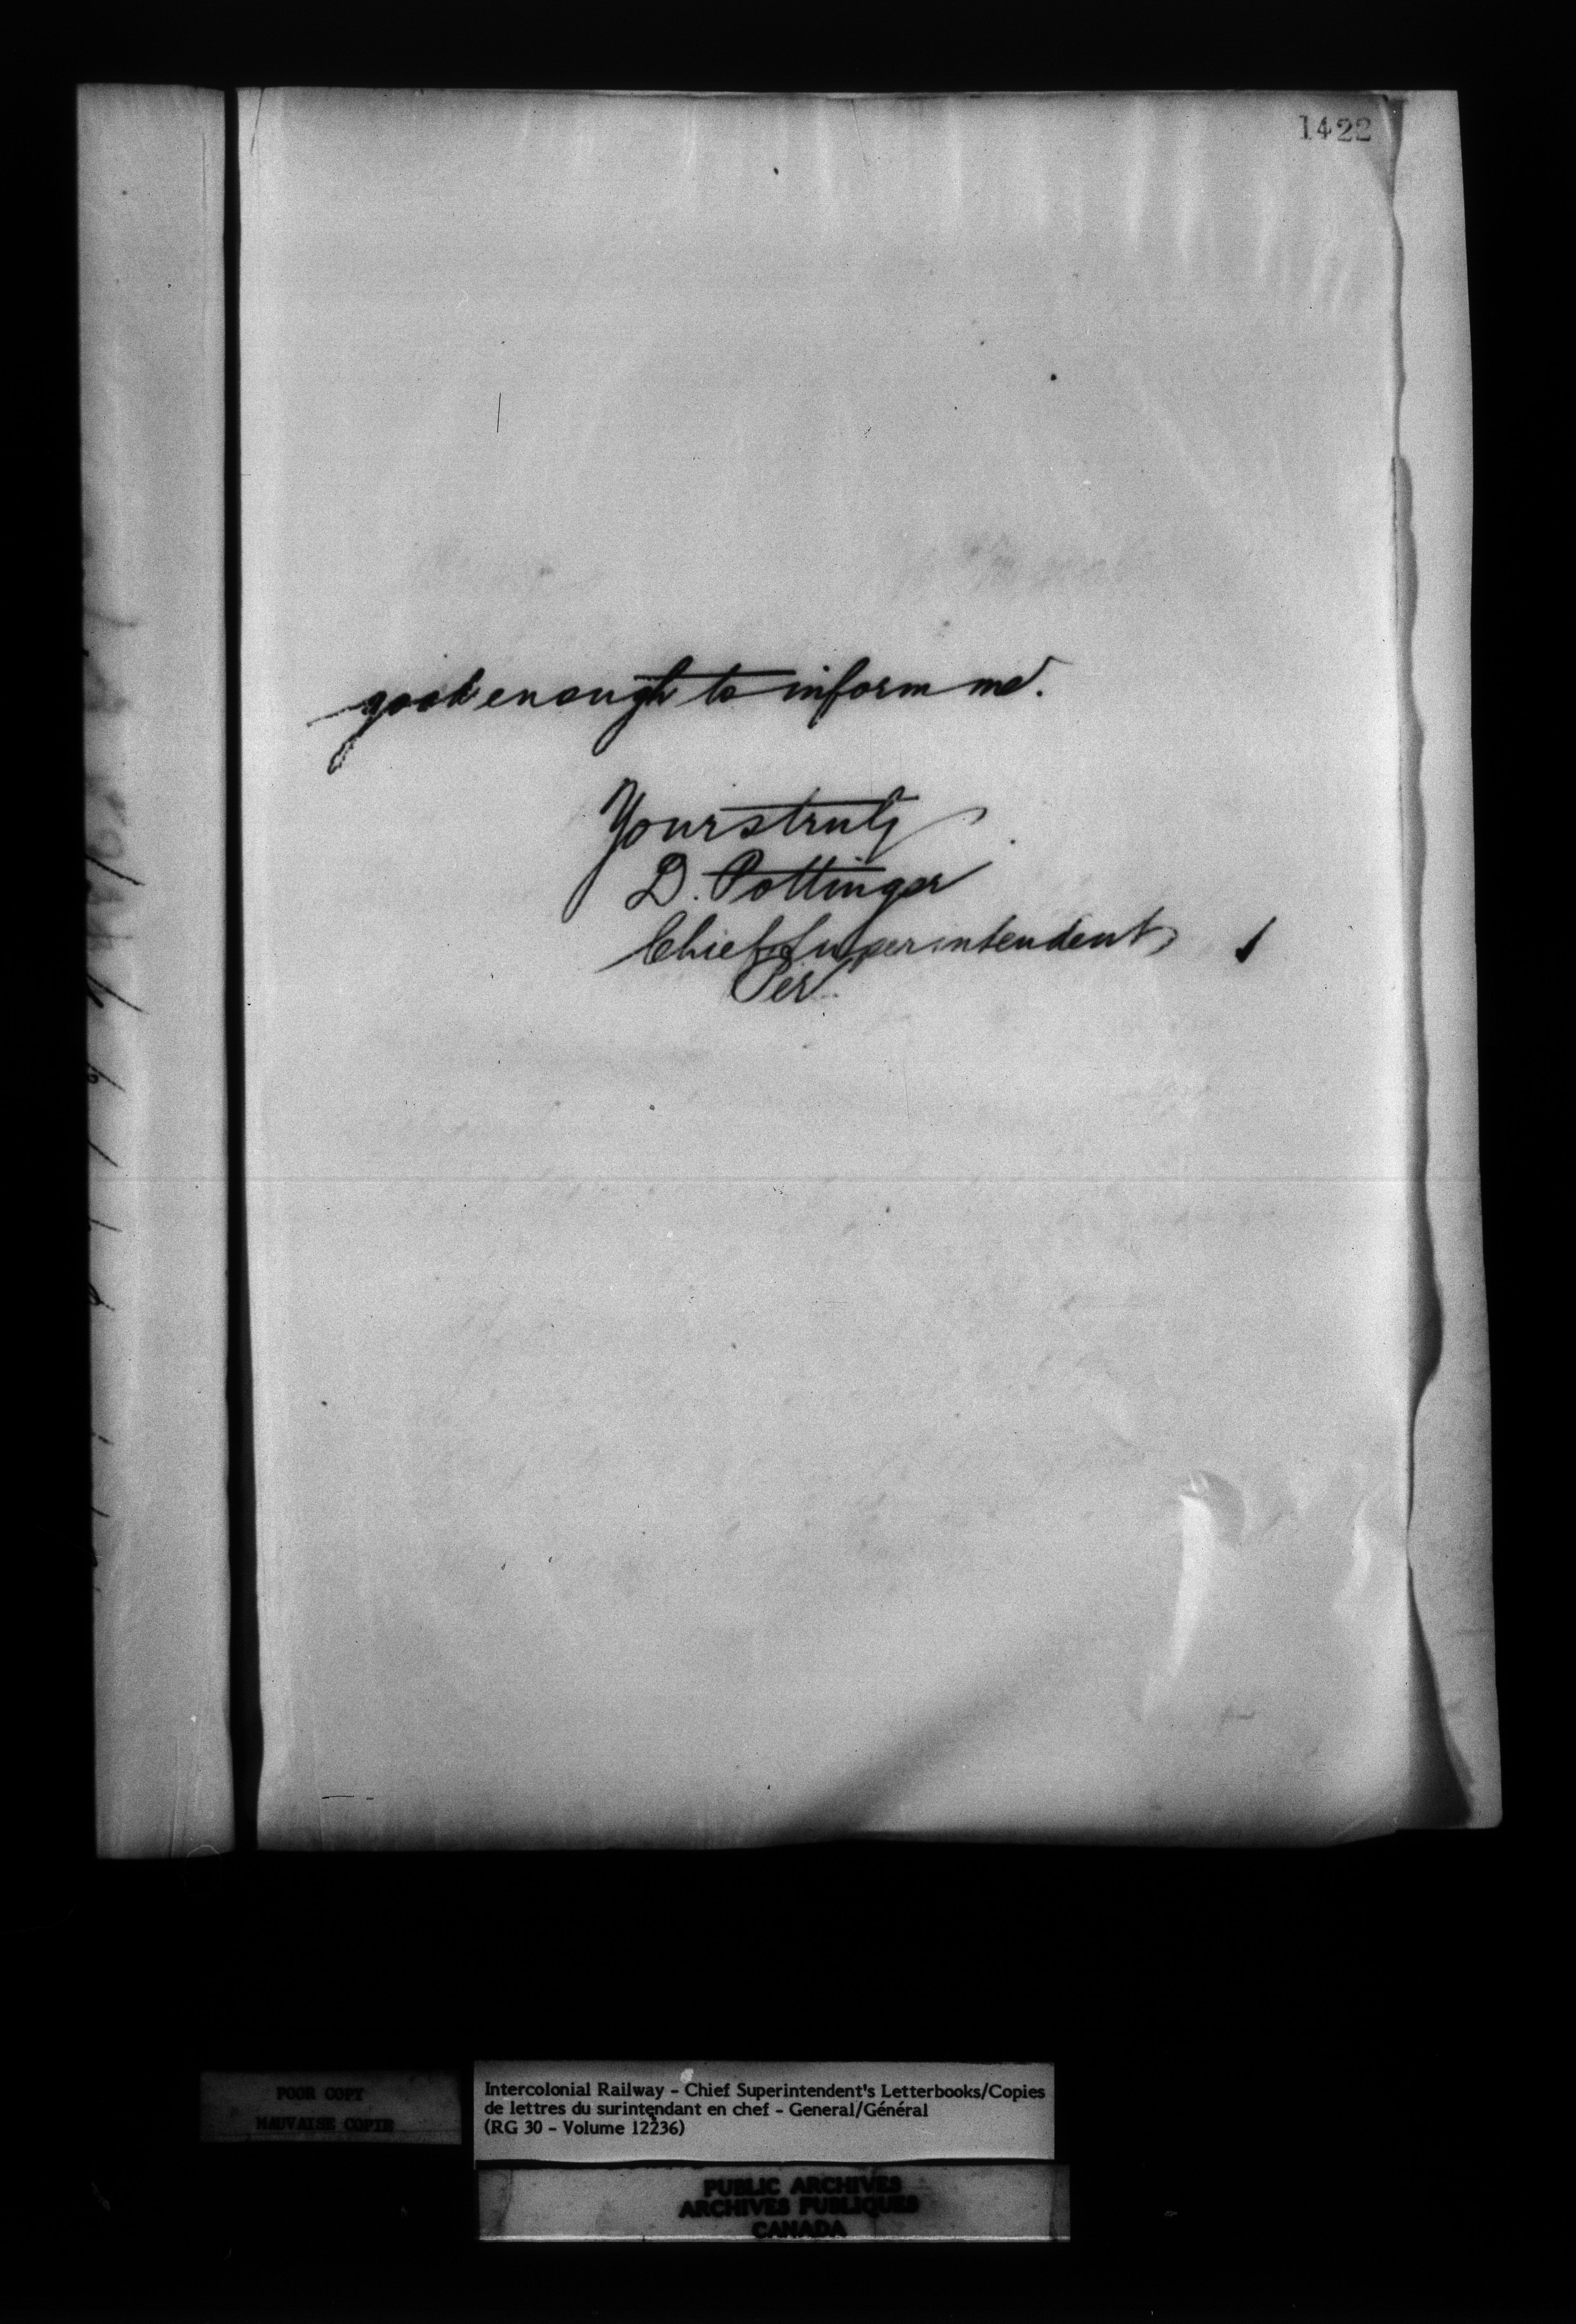 1422
good enough to inform me.
Yours truly
D. Pottinger
Chief Superintendent
Per
POOR COPY
MAUVAISE COPIE
Intercolonial Railway - Chief Superintendent's Letterbooks/Copies
de lettres du surintendant en chef - General/Général
(RG 30 - Volume 12236)
PUBLIC ARCHIVES
ARCHIVES PUBLIQUES
CANADA